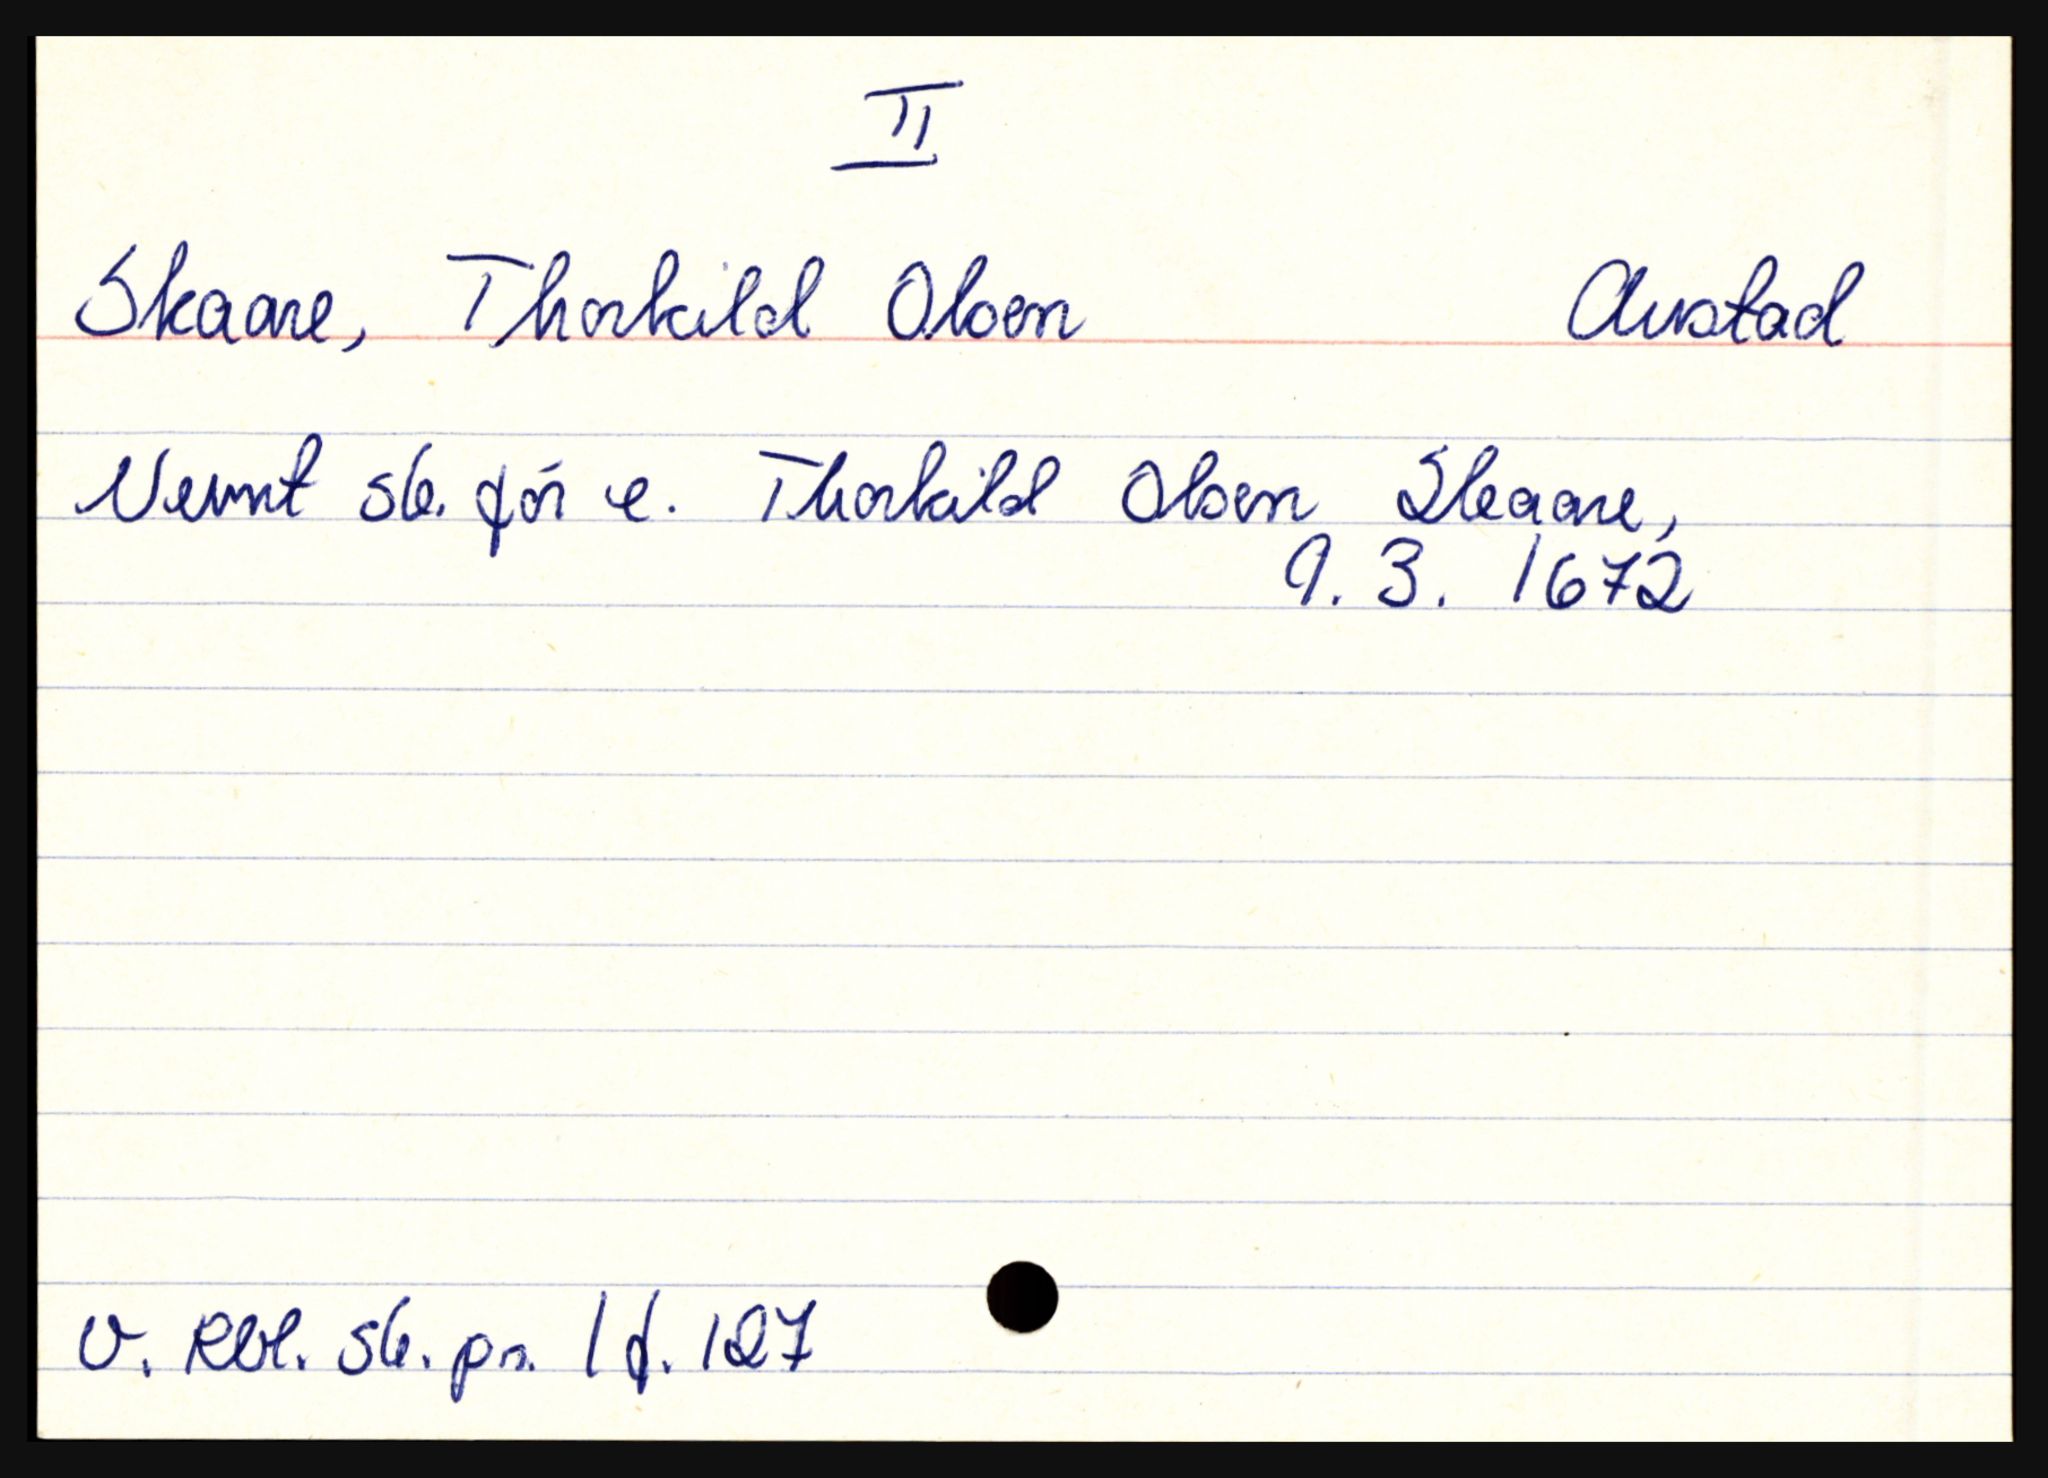 II
Skaare, Thorkild Olsen Austad
Nevnt sk. før e. Thorkild Olsen Skaare,
9. 3. 1672
V. Rbl. sk. pr. 1 f. 127